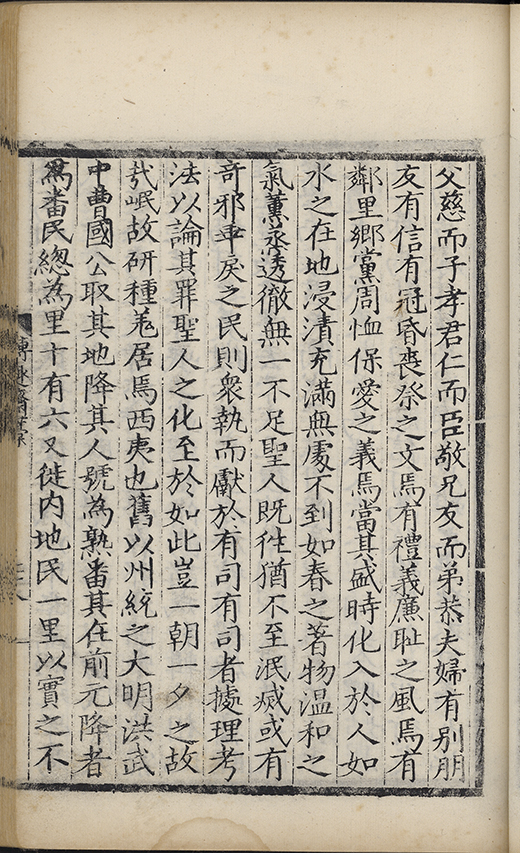 父慈而子孝君仁而臣敬兄友而弟恭夫婦有别朋
友有信有冠昏丧祭之文焉有禮義廉耻之風焉有
鄰里鄉黨周恤保愛之義焉當其盛時化入於人如
水之在地浸漬充滿無處不到如春之著物温和之
氣薰蒸透徹無一不足聖人既徃猶不至泯滅或有
奇邪乖戾之民則衆執而獻於有司有司者據理考
法以論其罪聖人之化至於如此豈一朝一夕之故
㢤岷故研種羌居焉西夷也舊以州統之大明洪武
中曹國公取其地降其人號為熟番其在前元降者
為番民總為里十有六又徙内地民一里以實之不